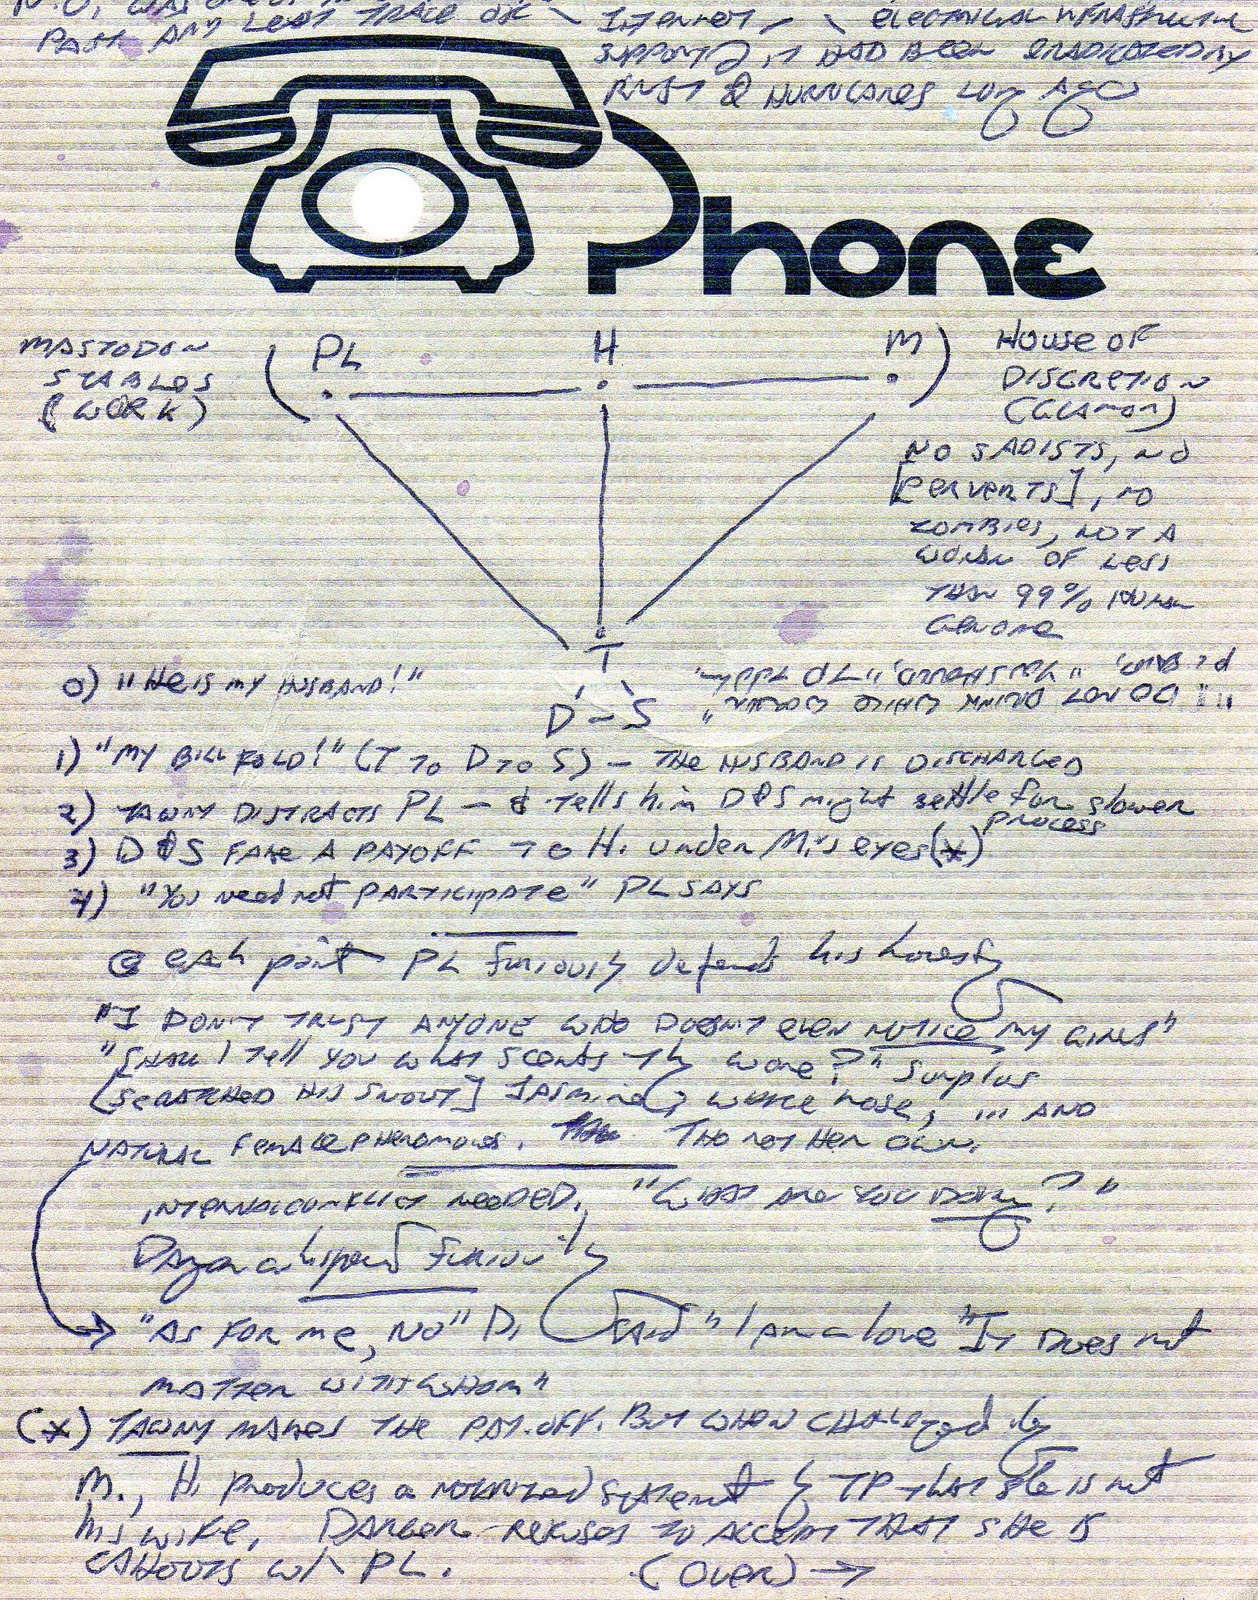 PAST ANY LAST TRACE OF
INTERNET / ELECTRICAL INFRASTRUCTURE
SUPPORT, IT HAD BEEN ERADICATED BY
RUST & HURRICANES LONG AGO
Phone
MASTODON
STABLES
(WORK)
PL H M
HOUSE OF
DISCRETION
(GLAMOR)
NO SADISTS, NO
[PERVERTS], NO
ZOMBIES, NOT A
WOMAN OF LESS
THAN 99% HUMAN
GENOME
T
D - S
0) "He is my HUSBAND!"
1) "MY BILLFOLD!" (T TO D TO S) - THE HUSBAND IS DISCHARGED
2) TAWNY DISTRACTS PL - & tells him D & S might settle for slower
process
3) D & S FAKE A PAYOFF TO H. under M.'s eyes (*)
4) "You need not PARTICIPATE" PL SAYS
@ each point PL furiously defends his honesty
"I DON'T TRUST ANYONE WHO DOESN'T even NOTICE my GIRLS"
"SHALL I tell YOU WHAT SCENTS they wore?" Surplus
[SCRATCHED HIS SNOUT] JASMINE, WHITE ROSE, ... AND
NATURAL Female PHEROMONES. THO not Her own.
INTERNAL CONFLICT NEEDED. "WHAT ARE YOU DOING?"
Darger whispered furiously
"AS FOR me, NO" D. SAID "I am in love" "IT Does not
MATTER WITH WHOM"
(*) TAWNY MAKES THE PAY-OFF. BUT WHEN CHALLENGED by
M., H. produces a NOTARIZED STATEMENT by TP that she is not
his WIFE. DARGER REFUSES TO ACCEPT THAT SHE IS
CAHOOTS w/ PL.
(Over) →